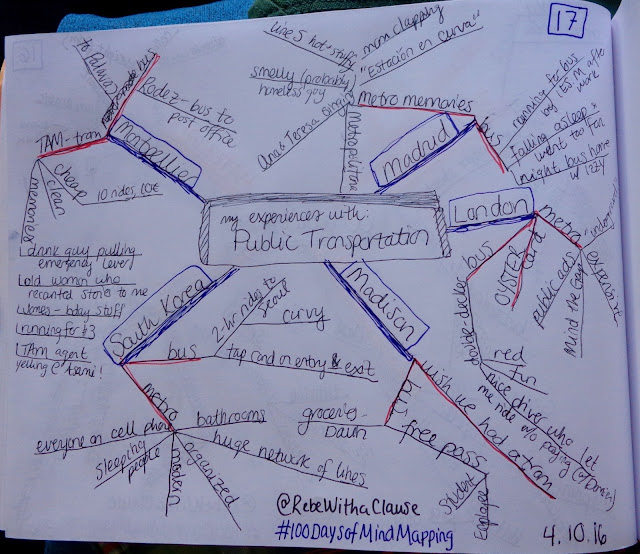 17
my experiences with:
Public Transportation
Montpellier
bus
to Palavas
Rodez - bus to
post office
TAM - tram
cheap
clean
10 rides, 10€
memories
drunk guy pulling
emergency lever
old woman who
recanted stories to me
running for #3
TAM agent
yelling @ tsami!
Madrid
metro memories
line 5 hot + stuffy
mom clapping
"Estación en curva"
smelly (probably)
homeless guy
Ana & Teresa
Metropolitana
bus
running to bus
by IES M after
work
falling asleep &
went too far
night bus home
w/ Izzy
London
metro
underground
expensive
Mind the Gap
public ads
OYSTER
card
bus
double-decker
red
fun
nice driver who let
me ride w/o paying
Madison
wish we had a tram
city
groceries -
Dawn
free pass
Student
Employee
South Korea
bus
2-hr rides to
Seoul
curvy
tap card on entry & exit
metro
bathrooms
huge network of lines
organized
modern
sleeping
people
everyone on cell phone
@RebeWithaClause
#100DaysofMindMapping
4.10.16